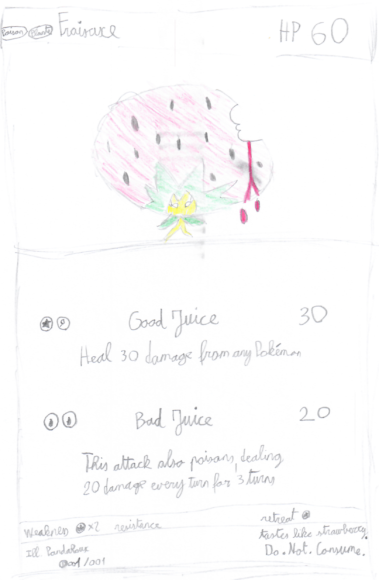 Poison Plante Fraisaxe HP 60
Good Juice 30
Heal 30 damage from any Pokémon
Bad Juice 20
This attack also poisons, dealing
20 damage every turn for 3 turns
Weakness x2 resistance
retreat
tastes like strawberry.
Ill. Pandaroux
Do. Not. Consume.
001/001